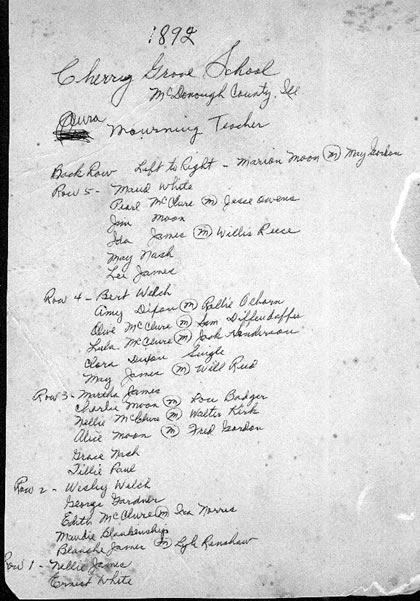 1892
Cherry Grove School
McDonough County, Ill
Laura Mourning Teacher
Back Row Left to Right - Marion Moon (m) May Gordon
Row 5 - Maud White
Pearl McClure (m) Jesse Owens
Jim Moon
Ida James (m) Willis Reese
May Nash
Lee James
Row 4 - Bert Welch
Amy Dixon (m) Rollie
Olive McClure (m) Sam Diffendaffer
Lula McClure (m) Jack Henderson
Clara Dixon Single
May James (m) Will Reid
Row 3 - Martha James
Charlie Moon (m) Rose Badger
Nellie McClure (m) Walter Kirk
Alice Moon (m) Fred Gordon
Grace Nash
Tillie Paul
Row 2 - Wesley Welch
George Gardner
Edith McClure (m) Ira Norris
Maudie Blankenship
Blanche James (m) Lyle Renshaw
Row 1 - Nellie James
Ernest White